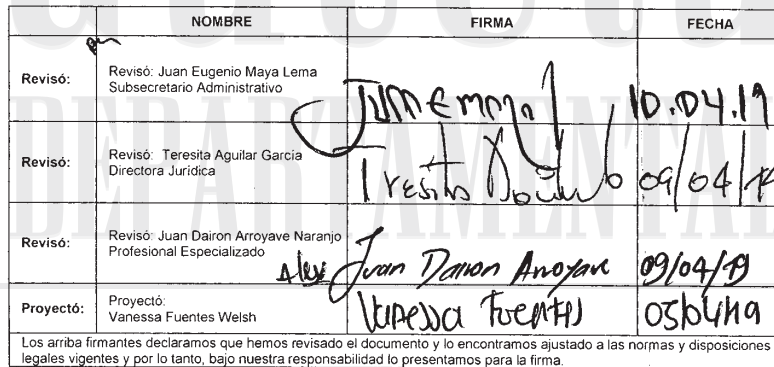 NOMBRE FIRMA FECHA
Revisó: Revisó: Juan Eugenio Maya Lema
Subsecretario Administrativo 10.04.19
Revisó: Revisó: Teresita Aguilar García
Directora Jurídica Tresita 09/04/19
Revisó: Revisó: Juan Dairon Arroyave Naranjo
Profesional Especializado Juan Dairon Arroyave 09/04/19
Proyectó: Proyectó:
Vanessa Fuentes Welsh Vanessa Fuentes 05/04/19
Los arriba firmantes declaramos que hemos revisado el documento y lo encontramos ajustado a las normas y disposiciones
legales vigentes y por lo tanto, bajo nuestra responsabilidad lo presentamos para la firma.
DEPARTAMENTAL